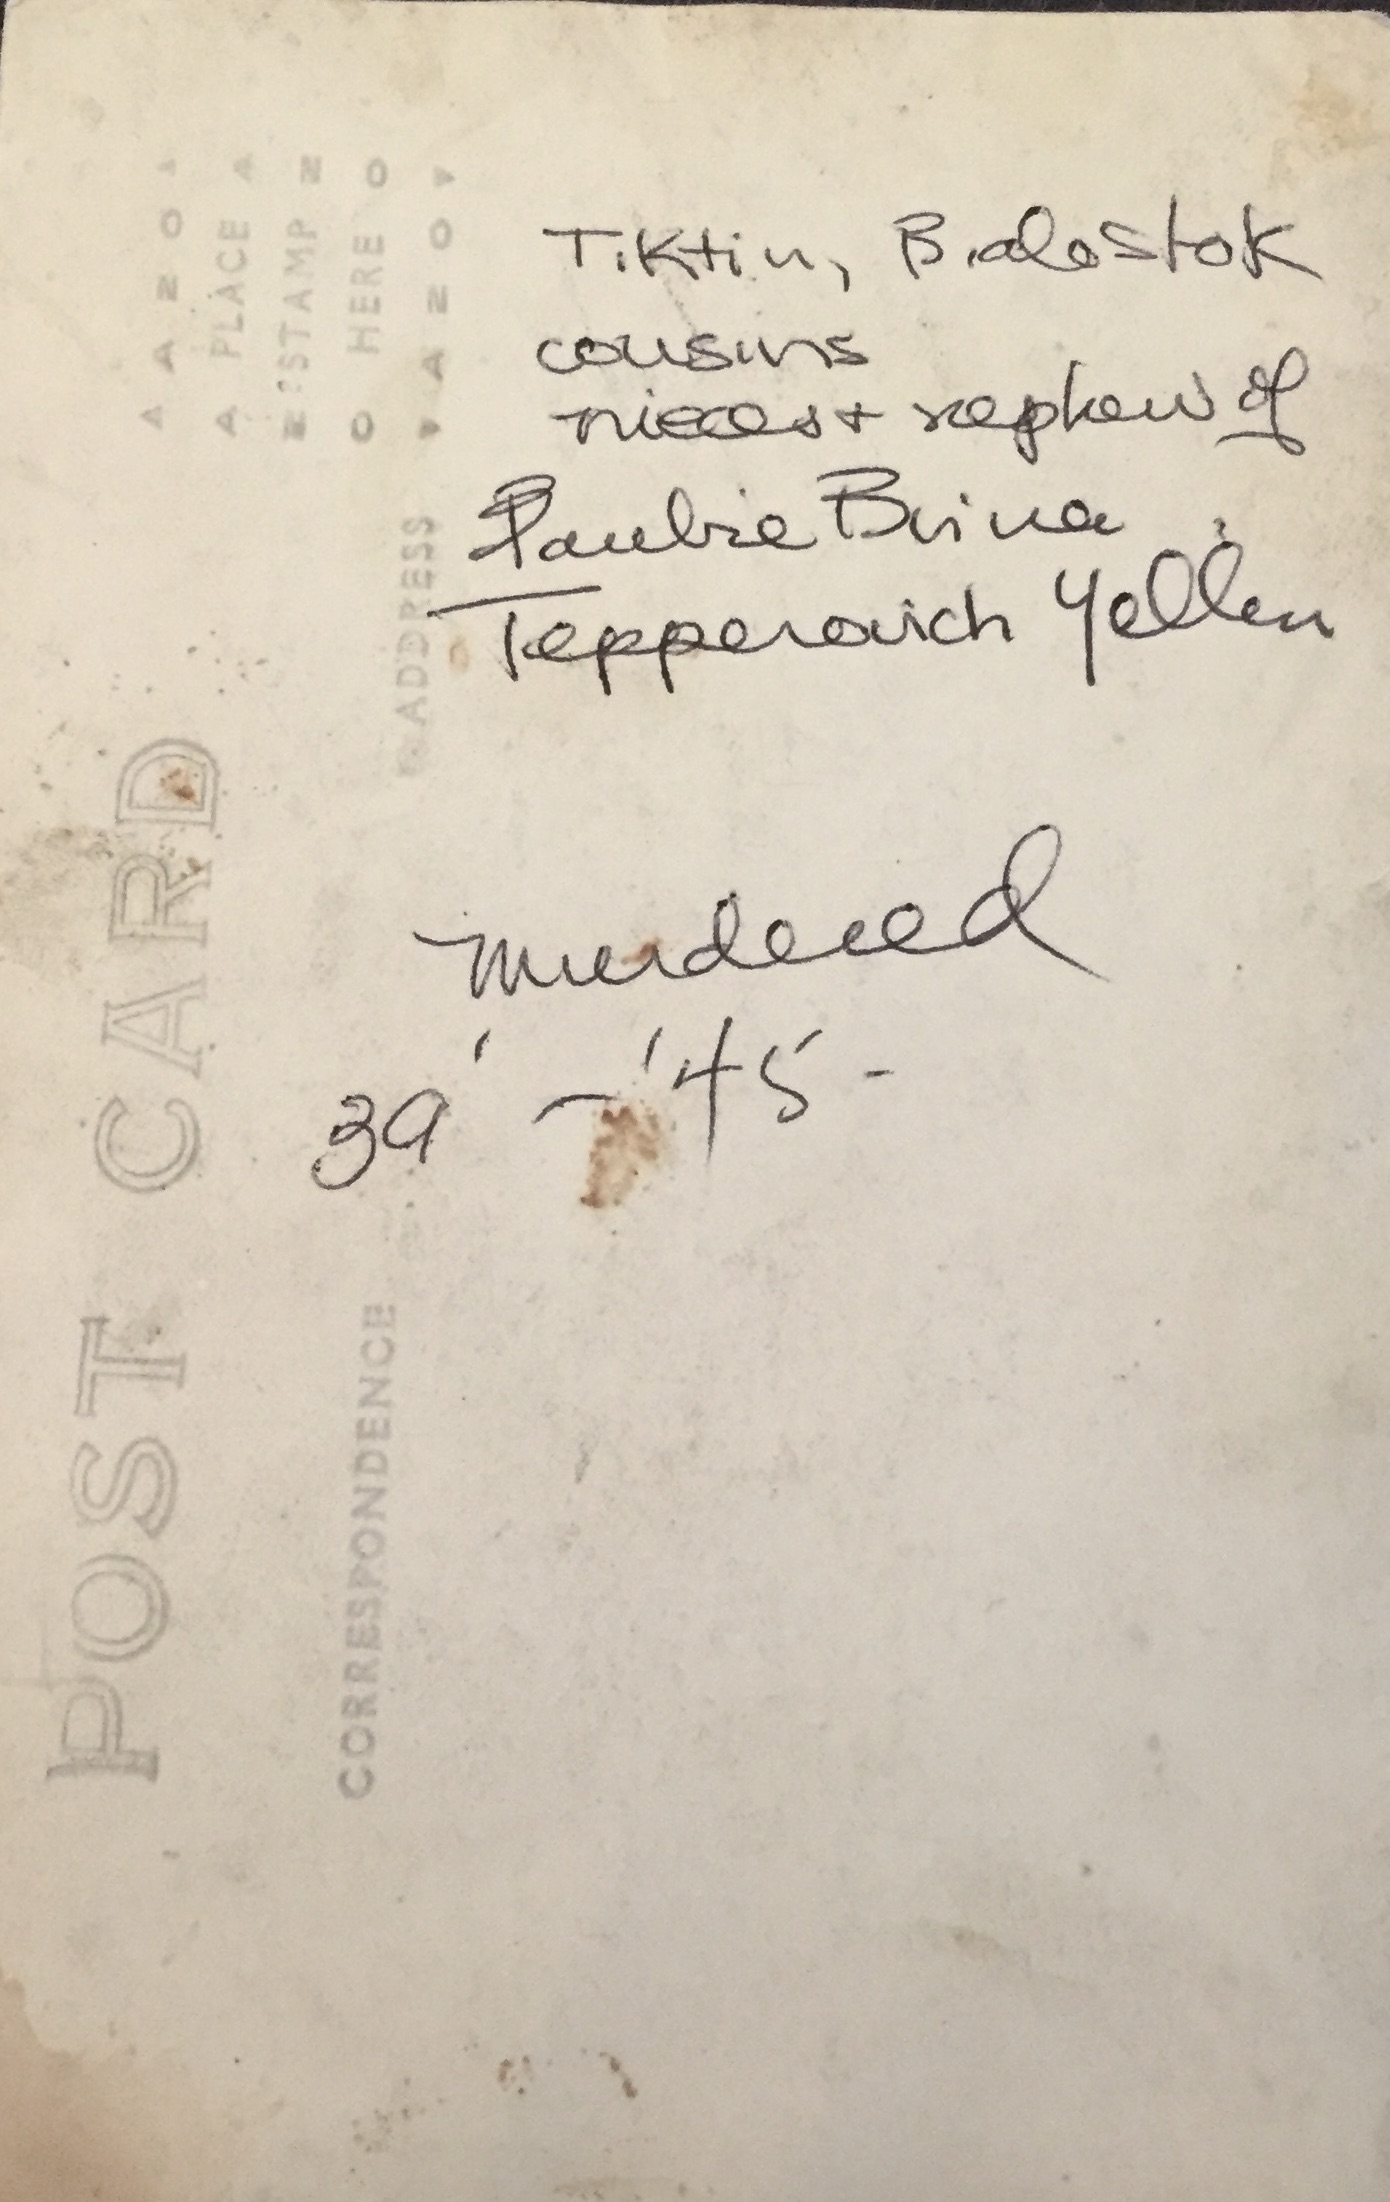 Tiktin, Bialostok
cousins
nieces + nephew of
Brina
Tepperovich Yellen
Murdered
39' - '45 -
POST CARD
CORRESPONDENCE
ADDRESS
AZO
PLACE
STAMP
HERE
AZO